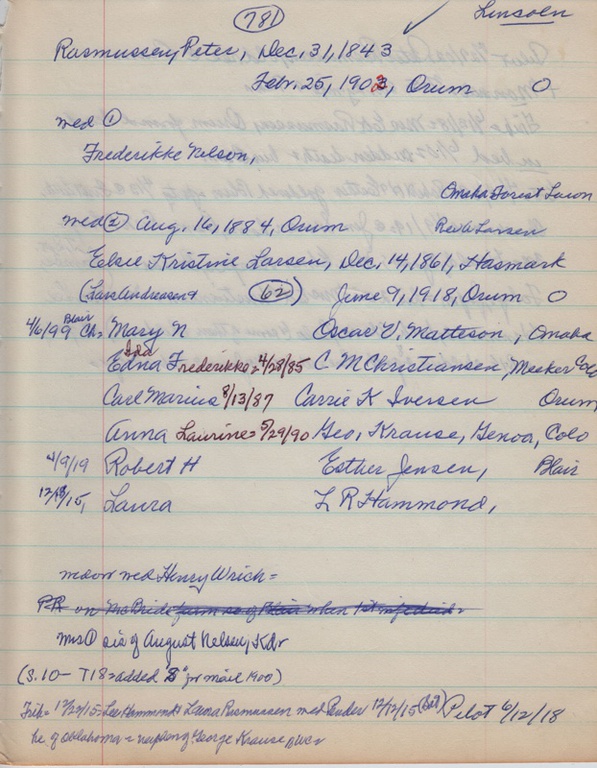 781
Lincoln
Rasmussen, Peter, Dec, 31, 1843
Febr. 25, 1903, Orum O
med ①
Frederikke Nelson,
Omaha Forest Lawn
med ② Aug. 16, 1884, Orum Rev A Larsen
Elsie Kristine Larsen, Dec, 14, 1861, Hasmark
(Lars Andreasen & 62 June 9, 1918, Orum O
4/6/99 Blair Ch= Mary N Oscar V. Matteson, Omaha
Edna Ida Frederikke = 4/28/85 C M Christiansen, Meeker Colo
Carl Marius 8/13/87 Carrie K Iversen Orum
Anna Laurine = 5/29/90 Geo, Krause, Genoa, Colo
4/9/19 Robert H Esther Jensen, Blair
Laura L R Hammond,
widow med Henry Wrich =
PR on McBride farm so of Blair when 1st
Mrs ① sis of August Nelson, Kdr
(S. 10 - T18 = added for mail 1900)
Trib = 12/22/15 = Lee Hammond & Laura Rasmussen med Pender 12/12/15 Pilot 6/12/18
he of Oklahoma = George Krause